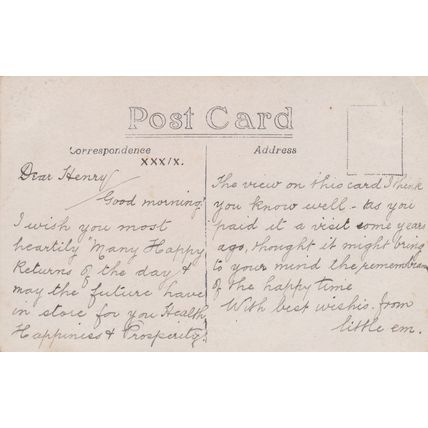 Post Card
Correspondence
Address
XXX/X.
Dear Henry
Good morning.
I wish you most
heartily "Many Happy
Returns of the day &
may the future have
in store for you Health
Happiness & Prosperity.
The view on this card I think
you know well - as you
paid it a visit some years
ago, thought it might bring
to your mind the remembrance
of the happy time
With best wishis. from
little em.